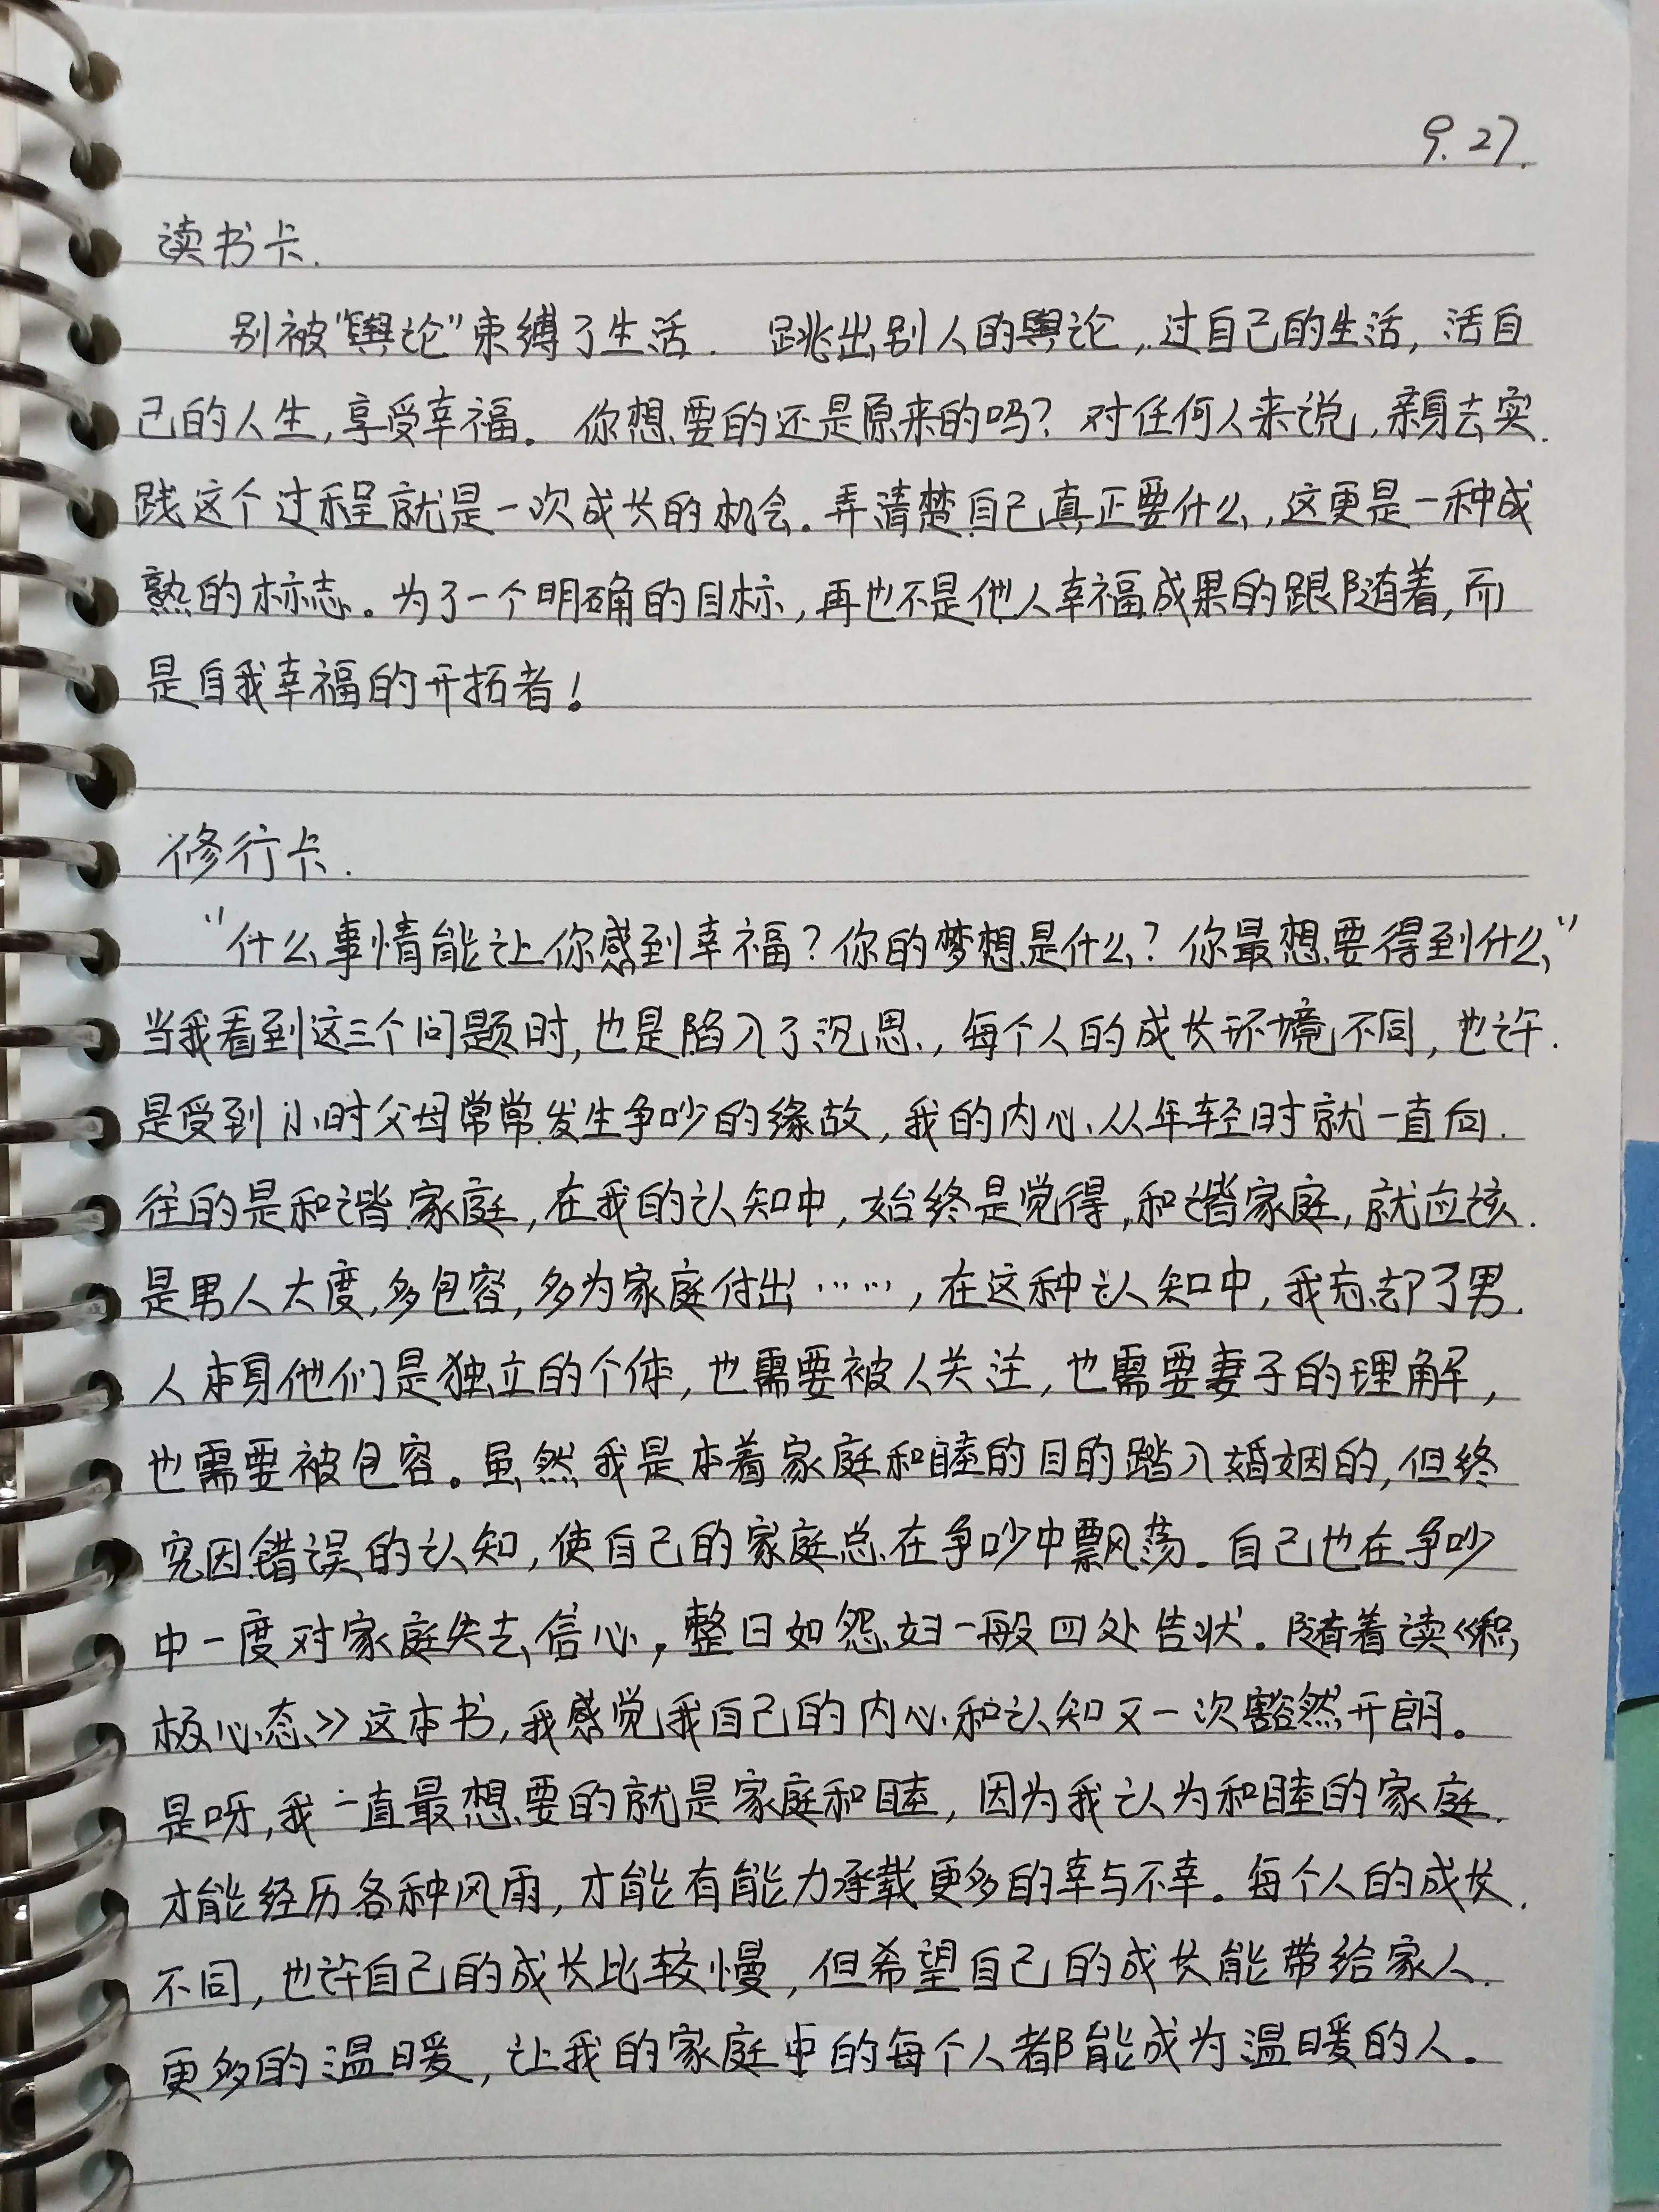 9.27.
读书卡.
别被“舆论”束缚了生活. 跳出别人的舆论,过自己的生活,活自
己的人生,享受幸福。你想要的还是原来的吗?对任何人来说,亲身去实
践这个过程就是一次成长的机会。弄清楚自己真正要什么,这更是一种成
熟的标志。为了一个明确的目标,再也不是他人幸福成果的跟随着,而
是自我幸福的开拓者!
修行卡.
“什么事情能让你感到幸福?你的梦想是什么?你最想要得到什么”
当我看到这三个问题时,也是陷入了沉思,每个人的成长环境不同,也许
是受到小时父母常常发生争吵的缘故,我的内心从年轻时就一直向
往的是和谐家庭,在我的认知中,始终是觉得,和谐家庭,就应该
是男人大度,多包容,多为家庭付出……,在这种认知中,我忘却了男
人本身他们是独立的个体,也需要被人关注,也需要妻子的理解,
也需要被包容。虽然我是本着家庭和睦的目的踏入婚姻的,但终
究因错误的认知,使自己的家庭总在争吵中飘荡。自己也在争吵
中一度对家庭失去信心,整日如怨妇一般四处告状。随着读《积
极心态》这本书,我感觉我自己的内心和认知又一次豁然开朗。
是呀,我一直最想要的就是家庭和睦,因为我认为和睦的家庭
才能经历各种风雨,才能有能力承载更多的幸与不幸。每个人的成长
不同,也许自己的成长比较慢,但希望自己的成长能带给家人
更多的温暖,让我的家庭中的每个人都能成为温暖的人。